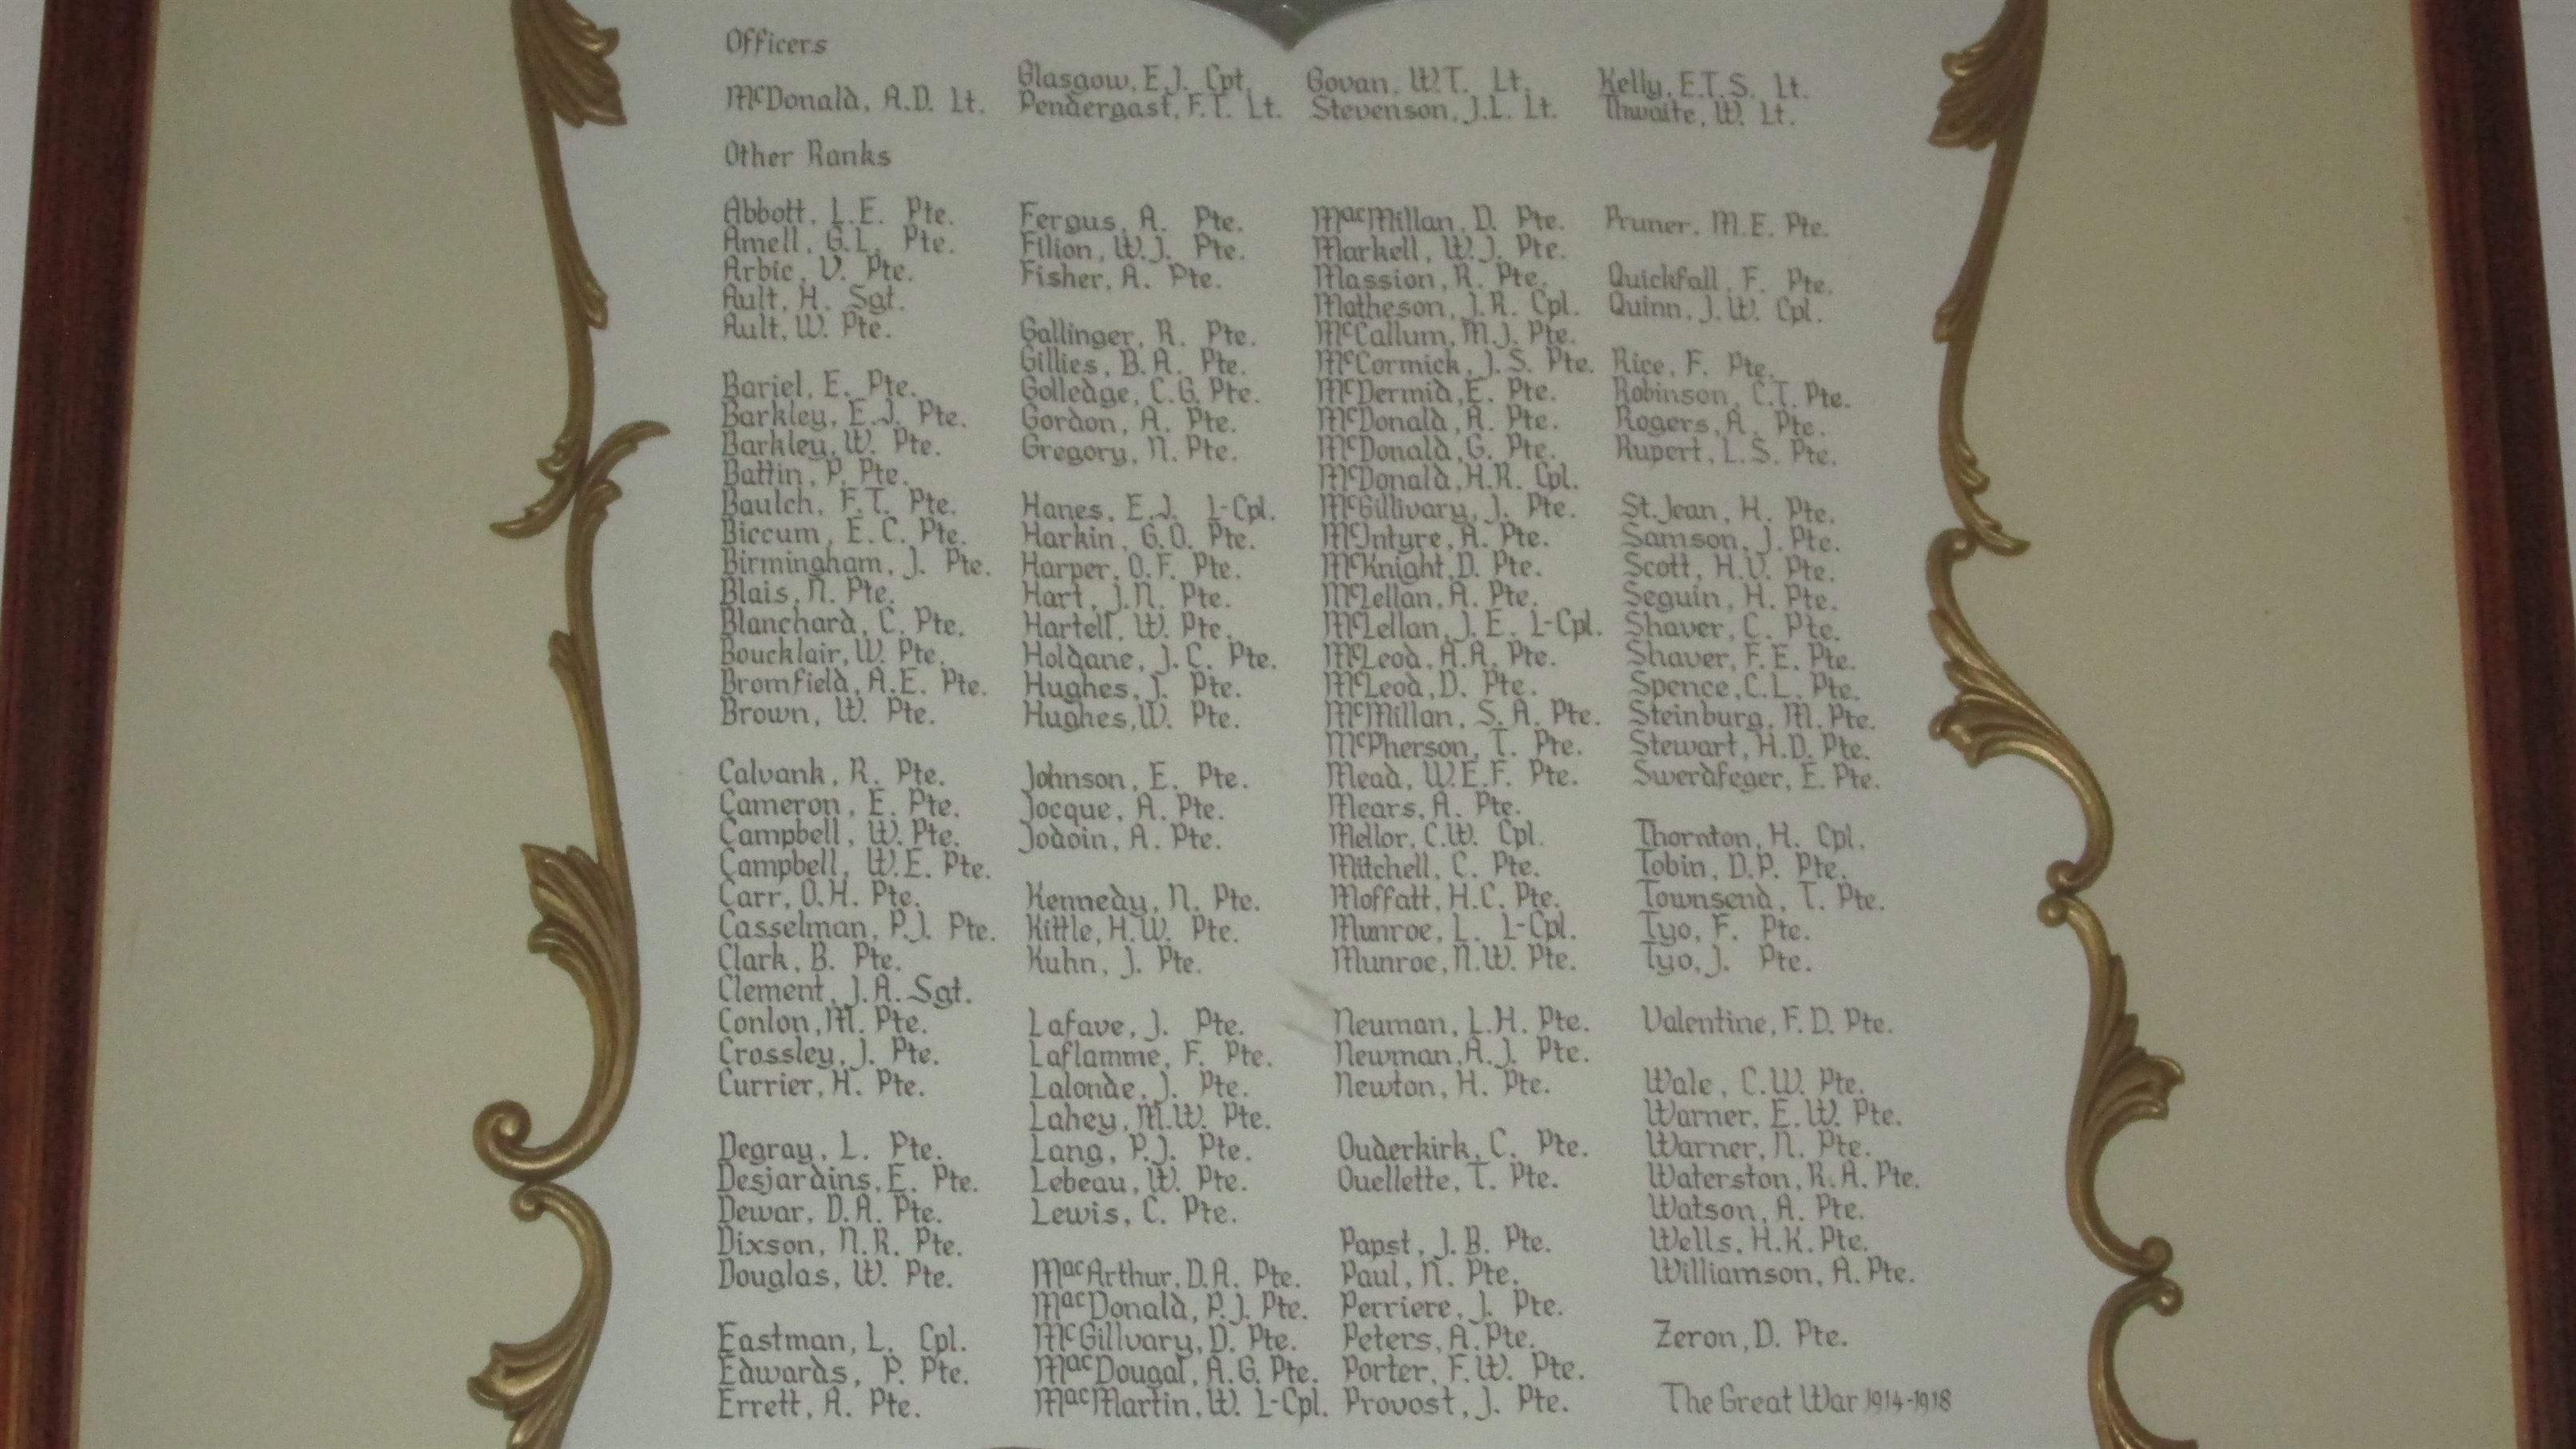 Officers
McDonald, A.D. Lt.
Glasgow, E.J. Cpt.
Pendergast, F.T. Lt.
Govan, W.T. Lt.
Stevenson, J.L. Lt.
Kelly, E.T.S. Lt.
Thwaite, W. Lt.
Other Ranks
Abbott, L.E. Pte.
Amell, G.L. Pte.
Arbic, V. Pte.
Ault, H. Sgt.
Ault, W. Pte.
Bariel, E. Pte.
Barkley, E.J. Pte.
Barkley, W. Pte.
Battin, P. Pte.
Baulch, F.T. Pte.
Biccum, E.C. Pte.
Birmingham, J. Pte.
Blais, N. Pte.
Blanchard, C. Pte.
Boucklair, W. Pte.
Bromfield, A.E. Pte.
Brown, W. Pte.
Calvank, R. Pte.
Cameron, E. Pte.
Campbell, W. Pte.
Campbell, W.E. Pte.
Carr, O.H. Pte.
Casselman, P.J. Pte.
Clark, B. Pte.
Clement, J.A. Sgt.
Conlon, M. Pte.
Crossley, J. Pte.
Currier, H. Pte.
Degray, L. Pte.
Desjardins, E. Pte.
Dewar, D.A. Pte.
Dixson, N.R. Pte.
Douglas, W. Pte.
Eastman, L. Cpl.
Edwards, P. Pte.
Errett, A. Pte.
Fergus, A. Pte.
Filion, W.J. Pte.
Fisher, A. Pte.
Gallinger, R. Pte.
Gillies, B.A. Pte.
Golledge, C.G. Pte.
Gordon, A. Pte.
Gregory, N. Pte.
Hanes, E.J. L-Cpl.
Harkin, G.O. Pte.
Harper, O.F. Pte.
Hart, J.N. Pte.
Hartell, W. Pte.
Holdane, J.C. Pte.
Hughes, J. Pte.
Hughes, W. Pte.
Johnson, E. Pte.
Jocque, A. Pte.
Jodoin, A. Pte.
Kennedy, N. Pte.
Kittle, H.W. Pte.
Kuhn, J. Pte.
Lafave, J. Pte.
Laflamme, F. Pte.
Lalonde, J. Pte.
Lahey, M.W. Pte.
Lang, P.J. Pte.
Lebeau, W. Pte.
Lewis, C. Pte.
MacArthur, D.A. Pte.
MacDonald, P.J. Pte.
McGillvary, D. Pte.
MacDougal, A.G. Pte.
MacMartin, W. L-Cpl.
MacMillan, D. Pte.
Markell, W.J. Pte.
Massion, R. Pte.
Matheson, J.R. Cpl.
McCallum, M.J. Pte.
McCormick, J.S. Pte.
McDermid, E. Pte.
McDonald, A. Pte.
McDonald, G. Pte.
McDonald, H.R. Cpl.
McGillivary, J. Pte.
McIntyre, A. Pte.
McKnight, D. Pte.
McLellan, A. Pte.
McLellan, J.E. L-Cpl.
McLeod, A.A. Pte.
McLeod, D. Pte.
McMillan, S.A. Pte.
McPherson, T. Pte.
Mead, W.E.F. Pte.
Mears, A. Pte.
Mellor, C.W. Cpl.
Mitchell, C. Pte.
Moffatt, H.C. Pte.
Munroe, L. L-Cpl.
Munroe, N.W. Pte.
Neuman, L.H. Pte.
Newman, A.J. Pte.
Newton, H. Pte.
Ouderkirk, C. Pte.
Ouellette, T. Pte.
Papst, J.B. Pte.
Paul, N. Pte.
Perriere, J. Pte.
Peters, A. Pte.
Porter, F.W. Pte.
Provost, J. Pte.
Pruner, M.E. Pte.
Quickfall, F. Pte.
Quinn, J.W. Cpl.
Rice, F. Pte.
Robinson, C.T. Pte.
Rogers, A. Pte.
Rupert, L.S. Pte.
St.Jean, H. Pte.
Samson, J. Pte.
Scott, H.V. Pte.
Seguin, H. Pte.
Shaver, C. Pte.
Shaver, F.E. Pte.
Spence, C.L. Pte.
Steinburg, M. Pte.
Stewart, H.D. Pte.
Swerdfeger, E. Pte.
Thornton, H. Cpl.
Tobin, D.P. Pte.
Townsend, T. Pte.
Tyo, F. Pte.
Tyo, J. Pte.
Valentine, F.D. Pte.
Wale, C.W. Pte.
Warner, E.W. Pte.
Warner, N. Pte.
Waterston, R.A. Pte.
Watson, A. Pte.
Wells, H.K. Pte.
Williamson, A. Pte.
Zeron, D. Pte.
The Great War 1914-1918